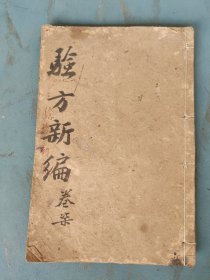 驗方新編
卷柒